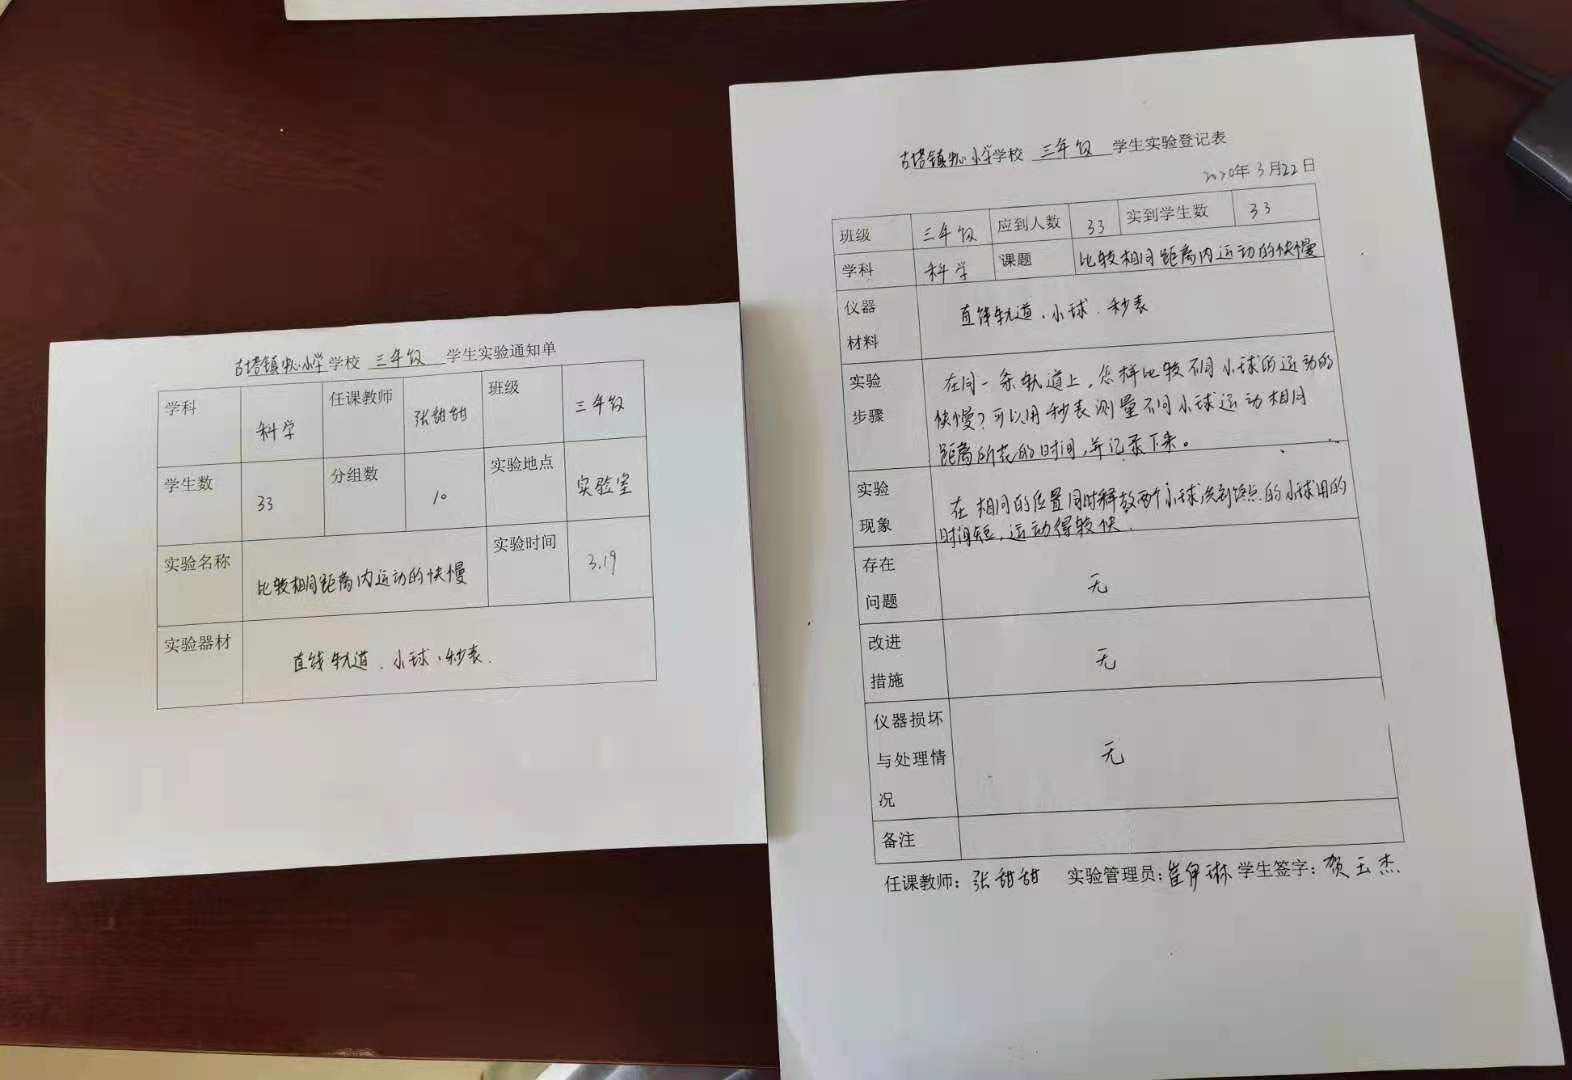 古塔镇中心小学学校 三年级 学生实验通知单
学科 科学 任课教师 张甜甜 班级 三年级
学生数 33 分组数 10 实验地点 实验室
实验名称 比较相同距离内运动的快慢 实验时间 3.19
实验器材 直线轨道、小球、秒表.
古塔镇中心小学学校 三年级 学生实验登记表
2020年3月22日
班级 三年级 应到人数 33 实到学生数 33
学科 科学 课题 比较相同距离内运动的快慢
仪器
材料
直线轨道、小球、秒表
实验
步骤
在同一条轨道上,怎样比较不同小球的运动的
快慢?可以用秒表测量不同小球运动相同
距离所花的时间,并记录下来。
实验
现象
在相同的位置同时释放两个小球先到终点的小球用的
时间短,运动得较快.
存在
问题
无
改进
措施
无
仪器损坏
与处理情
况
无
备注
任课教师:张甜甜 实验管理员:崔伊琳 学生签字:贺玉杰.